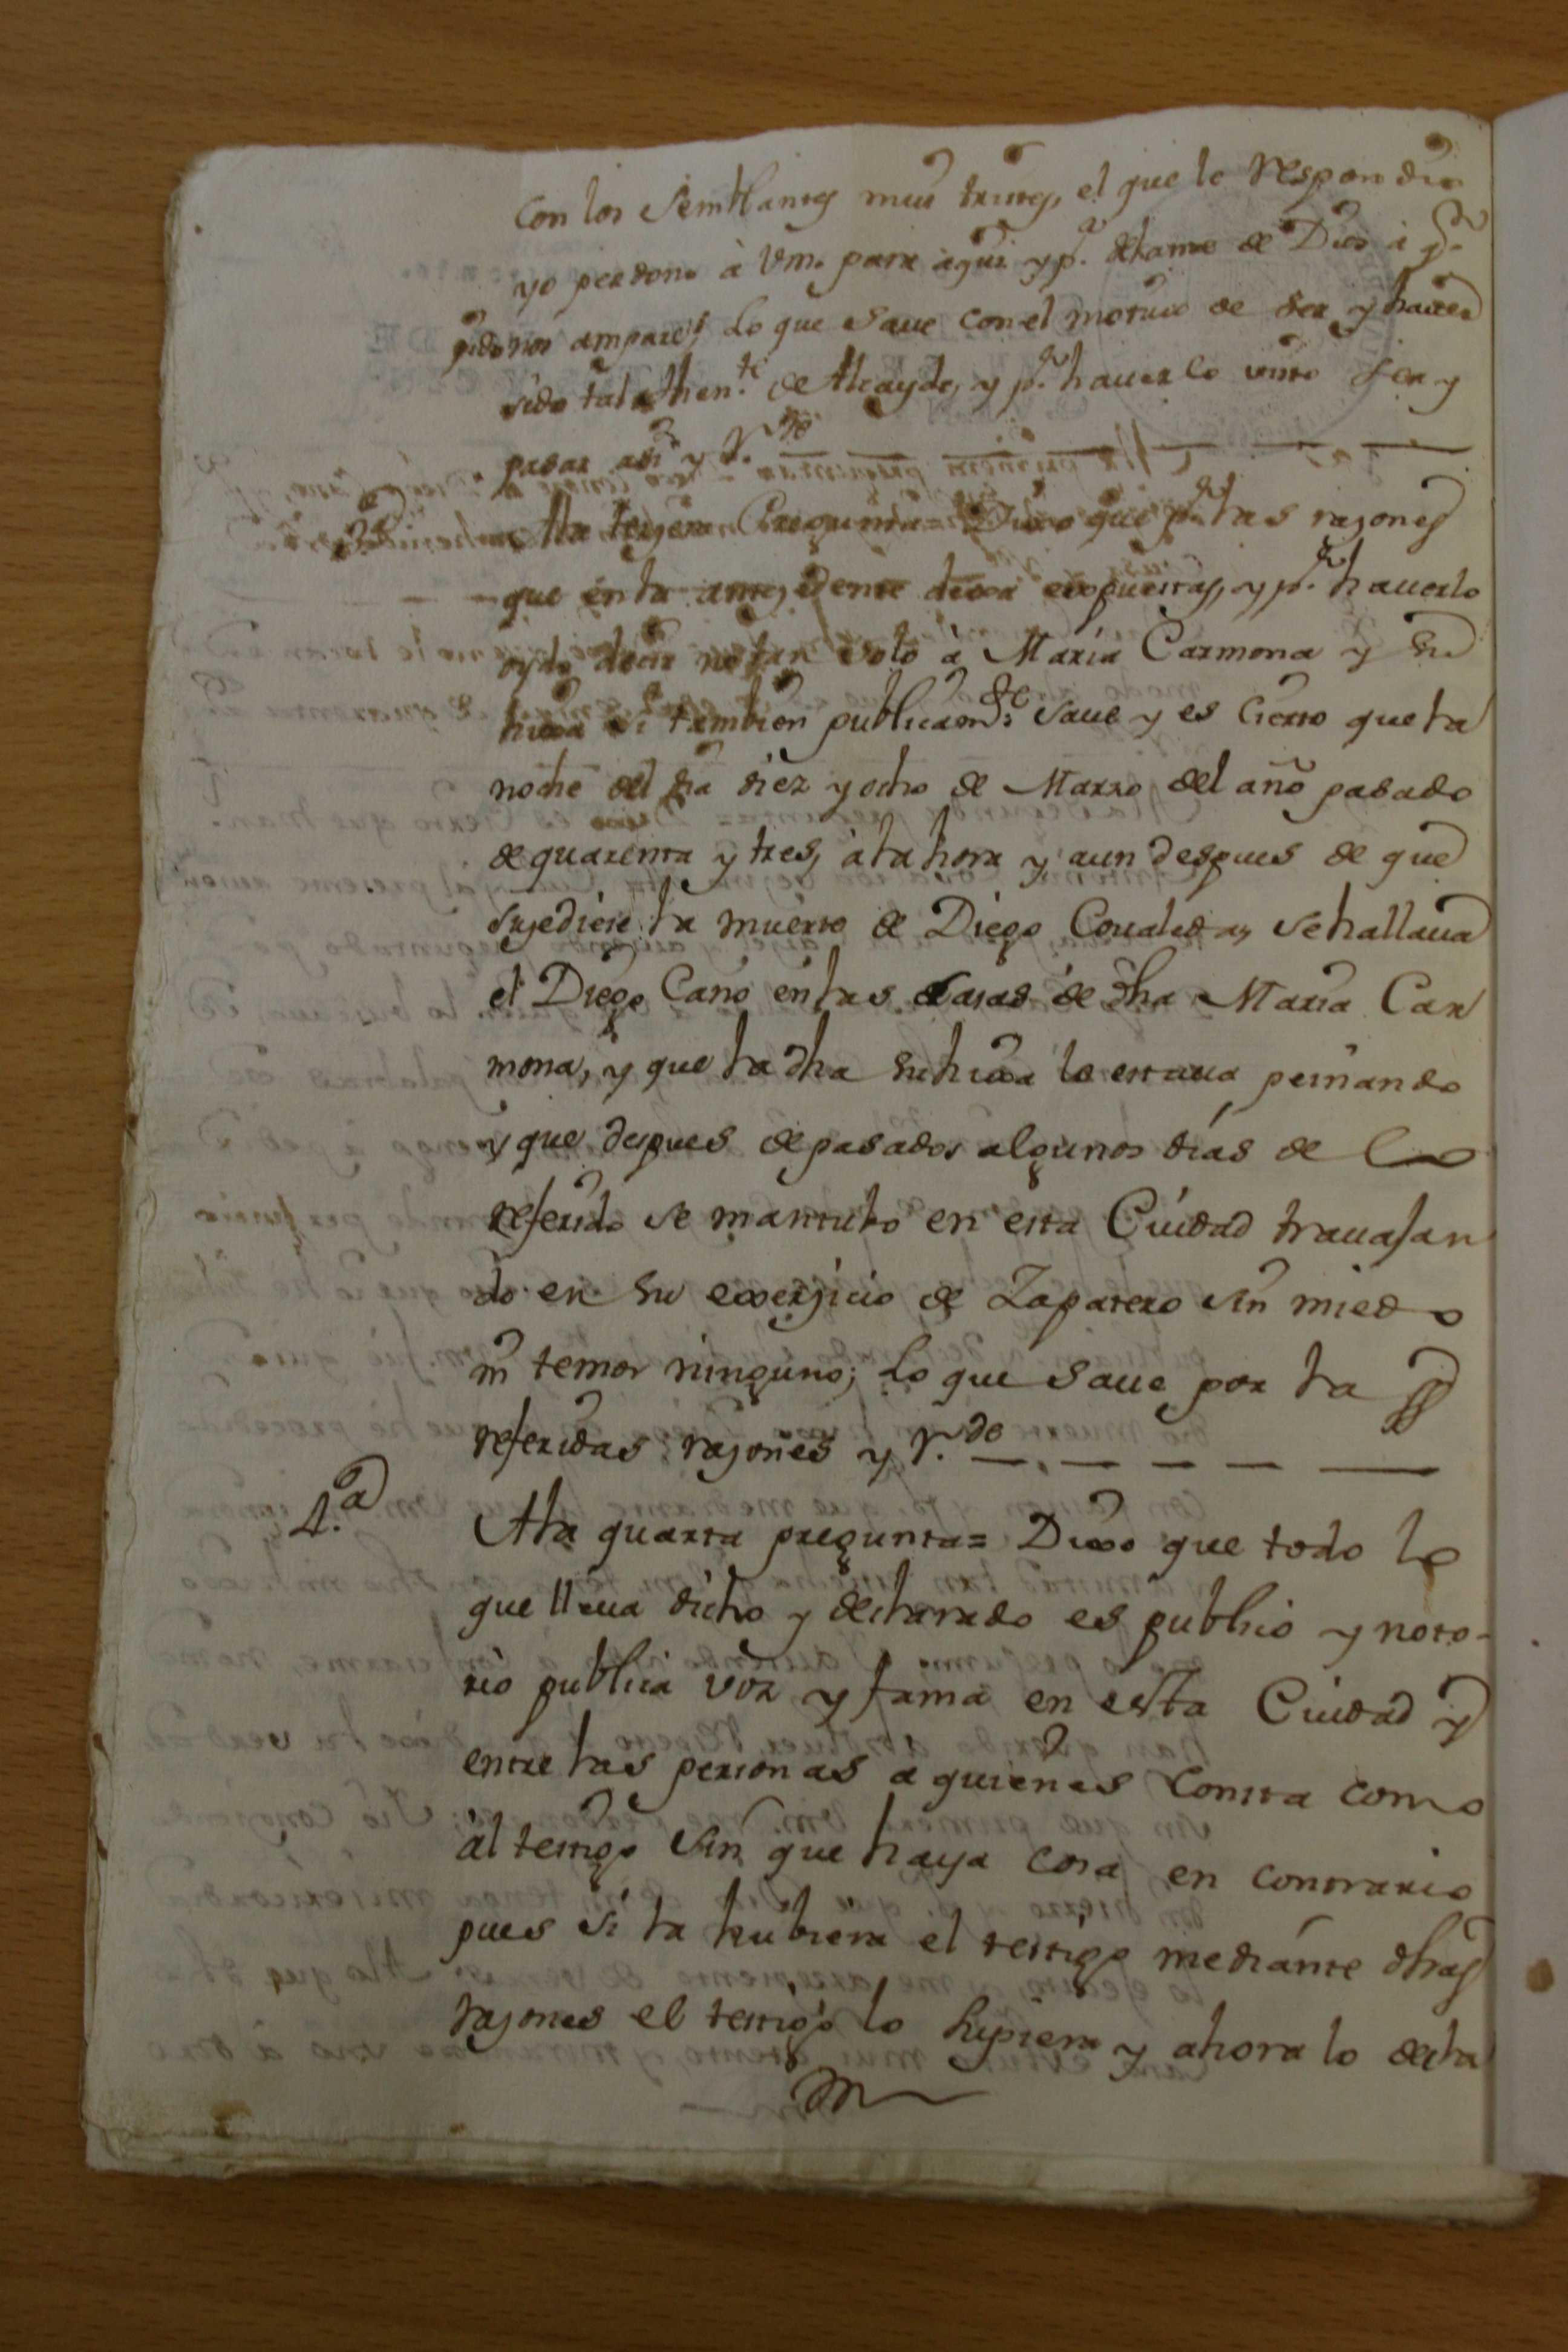 con los semblantes mui tristes, el que le respondio
yo perdono à Vm. para aqui y p.ª delante de Dios à q.n
pido nos ampare; lo que save con el motivo de ser y haver
sido tal then.te de Alcayde, y p.r haverlo visto ser y
pasar asi y r.de
3.ª
Ala terzera Pregunta = Dixo que p.r las razones
que en la antezedente dexa expuestas, y p.r haverlo
oydo decir no tan solo à Maria Carmona y su
hixa si tambien publicam.te save y es cierto que la
noche del dia diez y ocho de Marzo del año pasado
de quarenta y tres, à la hora y aun despues de que
suzediese la muerte de Diego Covaleda, se hallava
el Diego Cano en las casas de dha Maria Car
mona, y que la dha su hixa le estava peinando
y que despues de pasados algunos dias de lo
referido se mantubo en esta Ciudad travajan
do en su exerzicio de Zapatero sin miedo
ni temor ninguno; lo que save por la
referidas razones y r.de
4.ª
Ala quarta pregunta = Dixo que todo lo
que lleva dicho y declarado es publico y noto-
rio publica voz y fama en esta Ciudad y
entre las personas a quienes consta como
àl testigo sin que haya cosa en contrario
pues si la hubiera el testigo mediante dhas
razones el testigo lo supiera y ahora lo decla